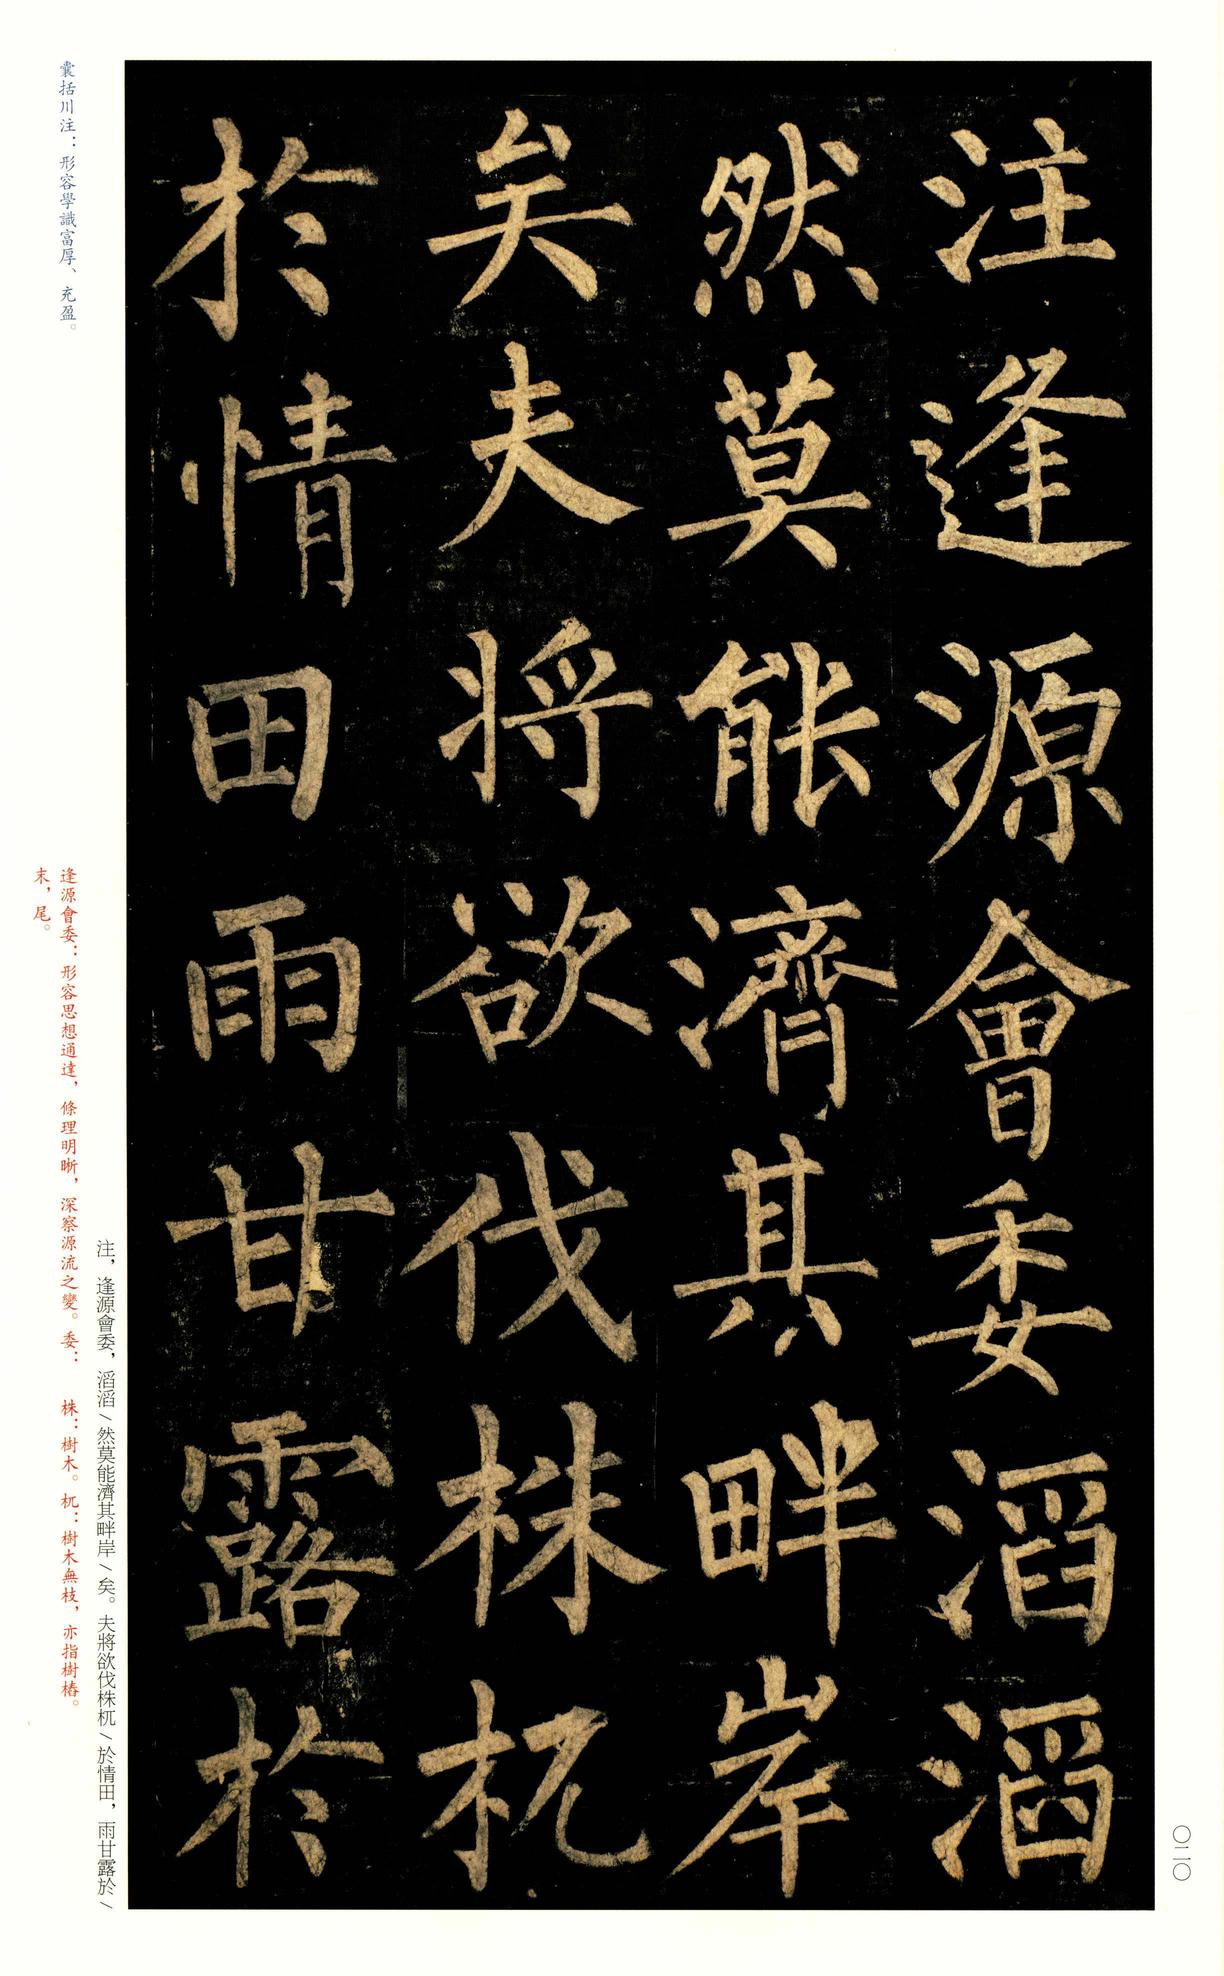 注逢源會委滔滔
然莫能濟其畔岸
矣夫將欲伐株杌
於情田雨甘露於
〇二〇
注，逢源會委，滔滔\然莫能濟其畔岸\矣。夫將欲伐株杌\於情田，雨甘露於\
囊括川注：形容學識富厚、充盈。
逢源會委：形容思想通達，條理明晰，深察源流之變。委：
末，尾。
株：樹木。杌：樹木無枝，亦指樹樁。